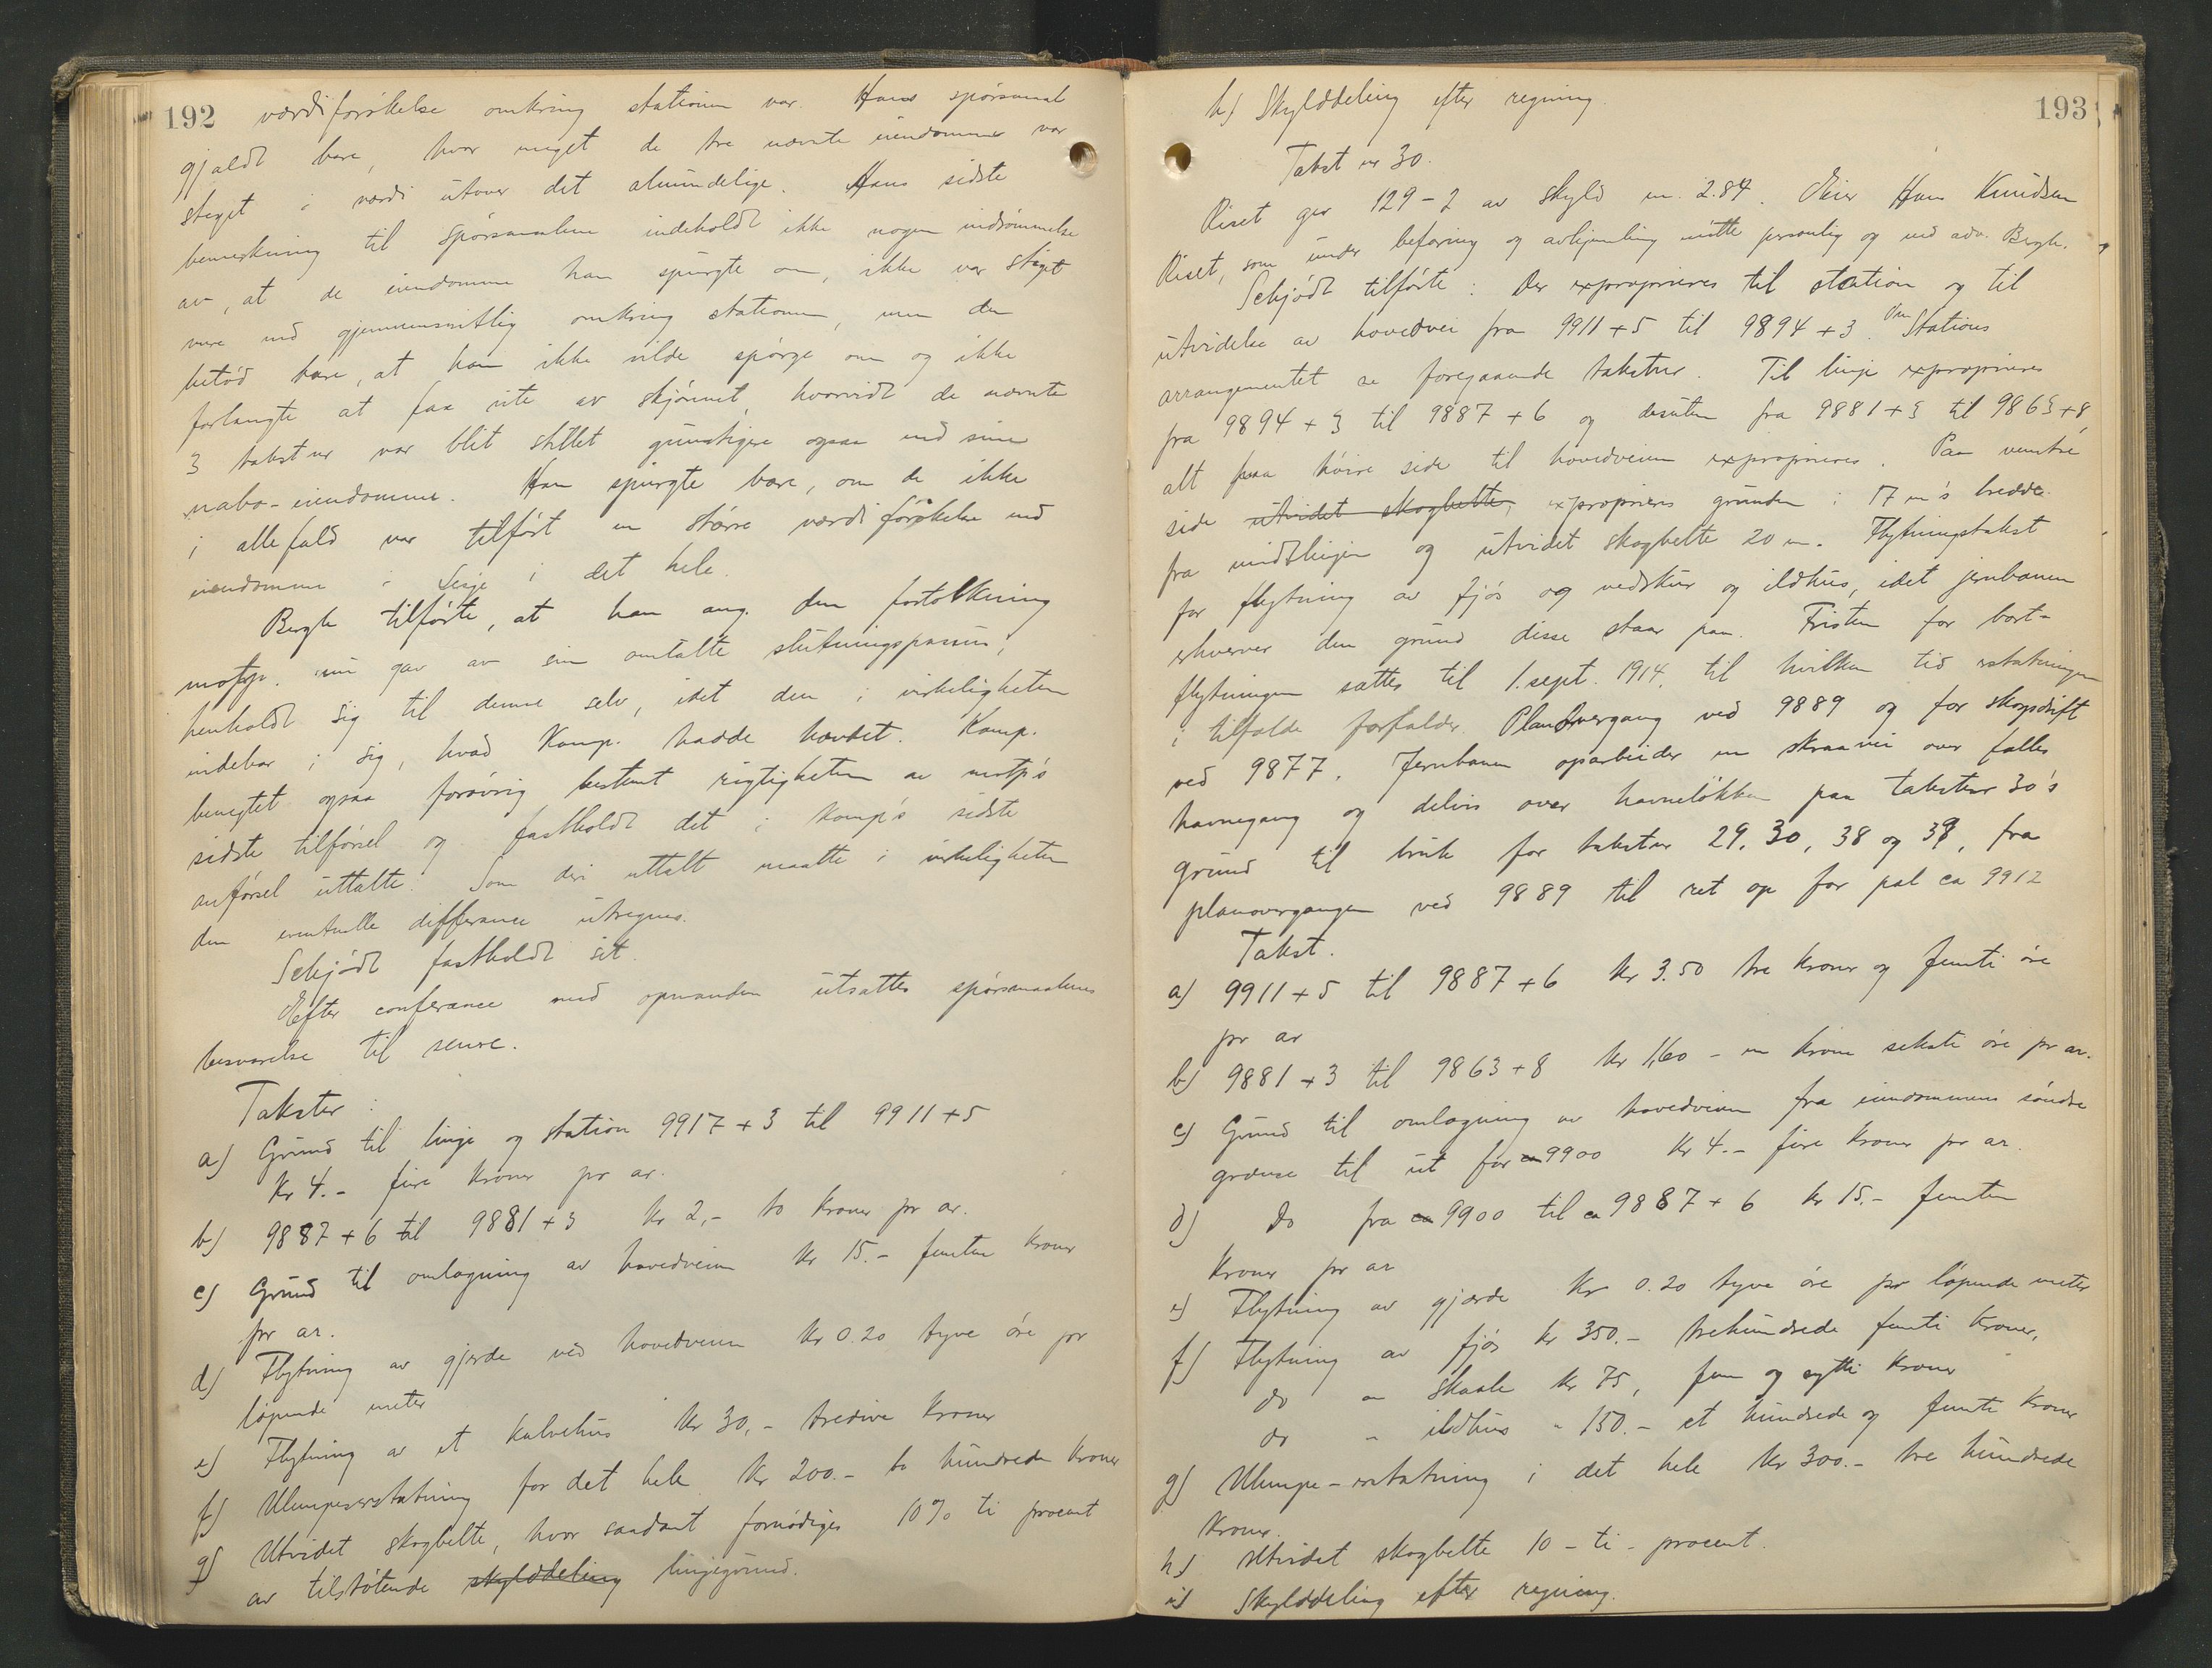 192 værdiforøkelse omkring stationen var. Hans spørsmaal
gjaldt bare, hvor meget de tre nævnte eiendommer var
steget i værdi utover det almindelige. Hans sidste
bemerkning til spørsmaalene indeholdt ikke nogen indrømmelse
av, at de eiendomme han spurgte om, ikke var steget
mere end gjennemsnitlig omkring stationen, men den
betød bare, at han ikke vilde spørge om og ikke
forlangte at faa vite av skjønnet, hvorvidt de nævnte
3 takstnr var blit stillet gunstigere ogsaa end sine
nabo-eiendomme. Han spurgte bare, om de ikke
i allefald var tilført en større værdiforøkelse end
eiendomme i Lesje i det hele.
Bergh tilførte, at han ang. den fortolkning
motp. nu gav av sin omtalte slutningspassus,
henholdt sig til denne selv, idet den i virkeligheten
indebar i sig, hvad Komp. hadde hævdet. Komp.
benegtet ogsaa forøvrig bestemt rigtigheten av motp's
sidste tilførsel og fastholdt det i komp's sidste
anførsel uttalte. Som deri uttalt maatte i virkeligheten
den eventuelle differance utregnes.
Schjødt fastholdt sit.
Efter conferance med opmanden utsattes spørsmaalenes
besvarelse til senere.
Takster:
a) Grund til linje og station 9917+3 til 9911+5
Kr 4.- fire kroner pr ar.
b) 9887+6 til 9881+3 kr 2,- to kroner pr ar.
c) Grund til omlægning av hovedveien kr 15.- femten kroner
pr ar.
d) Flytning av gjerde ved hovedveien kr 0.20 tyve øre pr
løpende meter
e) Flytning av et kalvehus kr 30,- tredive kroner
f) Ulempeserstatning for det hele kr 200.- to hundrede kroner
g) Utvidet skogbelte, hvor saadant fornødiges 10% ti procent
av tilstøtende skylddeling linjegrund.
193
h) Skylddeling efter regning.
Takst nr 30.
Riset gnr 129-2 av skyld m. 2.84. Eier Hans Knudsen
Riset, som under befaring og avhjemling møtte personlig og ved adv. Bergh.
Schjødt tilførte: Der exproprieres til station og til
utvidelse av hovedvei fra 9911+5 til 9894+3. Om Stations
arrangementet se foregaaende takstnr. Til linje exproprieres
fra 9894+3 til 9887+6 og desuten fra 9881+3 til 9863+8,
alt paa høire side til hovedveien exproprieres. Paa venstre
side utvidet skogbelte, exproprieres grunden i 17 m's bredde
fra midtlinjen og utvidet skogbelte 20 m. Flytningstakst
for flytning av fjøs og vedskur og ildhus, idet jernbanen
erhverver den grund disse staar paa. Fristen for bort-
flytningen sættes til 1. sept. 1914, til hvilken tid erstatningen
i tilfælde forfalder. Planovergang ved 9889 og for skogsdrift
ved 9877. Jernbanen oparbeider en skraavei over fælles
havnegang og delvis over havneløkken paa takstnr 30's
grund til bruk for takstnr 29, 30, 38 og 39, fra
planovergangen ved 9889 til ret op for pal ca 9912
Takst.
a) 9911+5 til 9887+6 kr 3.50 tre kroner og femti øre
pr ar
b) 9881+3 til 9863+8 kr 1,60 - en krone seksti øre pr ar.
c) Grund til omlægning av hovedveien fra eiendommens søndre
grænse til ut for ca 9900 kr 4.- fire kroner pr ar.
d) do fra ca 9900 til ca 9887+6 kr 15.- femten
kroner pr ar
e) Flytning av gjærde kr 0.20 tyve øre pr løpende meter
f) Flytning av fjøs kr 350.- trehundrede femti kroner,
do av skaale kr 75, fem og sytti kroner
do " ildhus " 150.- et hundrede og femti kroner
g) Ulempe-erstatning i det hele kr 300.- tre hundrede
kroner.
h) Utvidet skogbelte 10 - ti - procent.
i) Skylddeling efter regning.